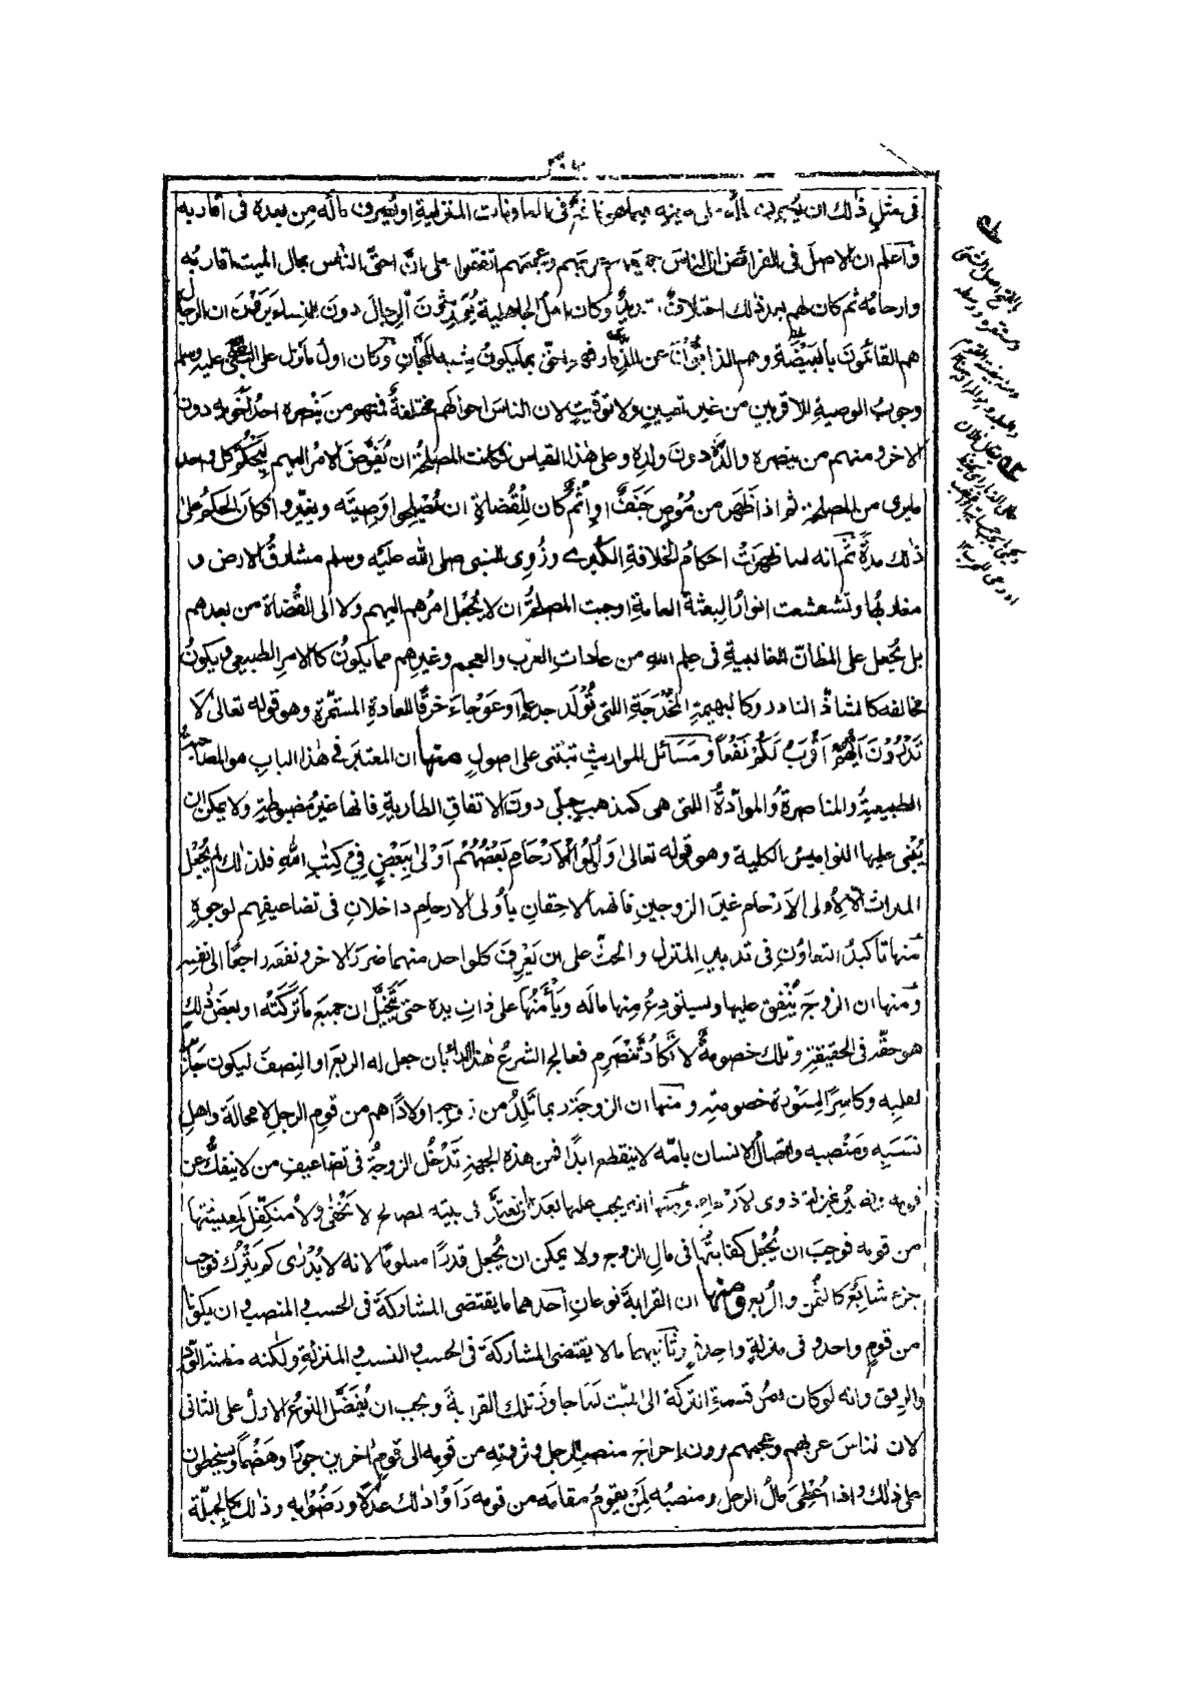 فى مثلِ ذٰلك ان فى المعاونات المنزلية او يُصرف ماله مِن بعده فى اقاربه
وَاعلم ان الاصلَ فى الفرائض ان الناس عربهم وعجمهم اتفقوا على انّ احقَّ الناس بمال الميت اقاربُه
وارحامُه ثم كان لهم بعد ذٰلك اختلافٌ شديدٌ وكان اهلُ الجاهلية يُورِّثُونَ الرجالَ دونَ النساء يَرَونَ ان الرجالَ
هم القائمُونَ بالبَيْضَةِ وهم الذابُّونَ عن الذِّمار فهم احقّ بما يكونُ شِبهَ المجَّانِ وكان اولُ ما نزل على النبى صلى الله عليه وسلم
وجوبُ الوصيةِ للاقربين من غير تعيينٍ ولا توقيتٍ لان الناسَ احوالُهم مختلفةٌ فمنهم من يَنْصره احدُ اَخَوَيه دون
الاخر ومنهم من ينصره والدُه دون ولدِه وعلى هٰذا القياس فكانت المصلحةُ ان يُفَوَّضَ الامرُ اليهم لِيَحكُمَ كل واحد
مايرى من المصلحة ثم اذا ظَهَرَ من مُوْصٍ جَنَفٌ او اِثْمٌ كان للقُضاةِ ان يُصْلِحوا وصيتَه ويغيِّروا فكان الحكمُ على
ذٰلك مدةً ثم انه لما ظهرَتْ احكامُ الخلافةِ الكُبرىٰ وزُوِى للنبى صلى الله عليه وسلم مشارقُ الارض و
مغاربُها وتشعشعت انوارُ البِعثة العامةِ اوجبت المصلحةُ ان لا يُجعل امرُهم اليهم ولا الى القُضاة من بعدهم
بل يُجعل على المظانّ الغالبيةِ فى علم اللهِ من عاداتِ العرب والعجم وغيرِهم مما يكونُ كالامر الطبيعى ويكونُ
مخالفه كالشاذّ النادر وكالبهيمةِ المُخْدَجَةِ التى تُوْلَد جدعاء او عوجاءَ خرقًا للعادةِ المستمّرة وهو قوله تعالىٰ لَا
تَدْرُوْنَ اَيُّهُمْ اَقْرَبُ لَكُمْ نَفْعاً وَمَسَائل المواريثِ تبتنى على اصولٍ منها ان المعتبَر فى هٰذا البابِ هو المصاحبةُ
الطبيعيةُ والمناصرةُ والموادّةُ التى هى كمذهبٍ جبلّى دون الاتفاقاتِ الطارية فانها غيرُ مضبوطةٍ ولا يمكن ان
يُبْنى عليها النواميسُ الكلية وهو قوله تعالىٰ وَاُولُوا الْاَرْحَامِ بَعْضُهُمْ اَوْلٰى بِبَعْضٍ فِىْ كِتٰبِ اللهِ فلذٰلك لم يُجْعل
الميراث الا لِاُولى الاَرْحام غيرَ الزوجينِ فانهما لاحقانِ باُولى الارحام داخلانِ فى تضاعيفِهم لوجوهٍ
منها تاكيدُ التعاونِ فى تدبيرِ المنزلِ والحثّ على ان يَعْرِفَ كل واحد منهما ضررَ الاخر ونفعه راجعًا الى نفسِه
ومنها ان الزوجَ يُنْفِق عليها ويستودِعُ مِنها مالَه ويَأْمَنُها على ذاتِ يدِه حتى يَتَخيَّل ان جميعَ ماتَرَكَتْه او بعضَ ذٰلك
هو حقُّه فى الحقيقةِ وتلك خصومةٌ لا تكادُ تَنْصَرِم فعالج الشرعُ هٰذا الداءَ بان جعل له الربعَ او النصفَ ليكون جابرًا
لقلبِه وكاسِرًا لِسَوْرة خصومتِه ومنها ان الزوجةَ ربما تَلِدُ من زوجها اولادًا هم من قومِ الرجلِ لا محالةَ واهلِ
نسَبَهِ ومَنْصبِه واتصالُ الانسان بامّه لا ينقطع ابدًا فمن هذه الجهةِ تَدْخُل الزوجةُ فى تضاعيفِ من لا ينفكُّ عن
قومه بمنزلة ذوى الارحام ومنها انه يجب عليها بعدَه ان تعتدَّ فى بيته لمصالح لا تَخْفٰى ولا مُتكفِّلَ لِمَعيشتها
من قومِه فوجب ان يُجْعل كفايتُها فى مالِ الزوجِ ولا يمكن ان يُجعل قدرًا معلومًا لانه لا يُدْرٰى كم يَتْرُك فوجب
جزء شائع كالثمن والربع ومنها ان القرابةَ نوعانِ احدهما ما يقتضى المشاركةَ فى الحسب والمنصب وان يكونا
من قومٍ واحد وفى منزلةٍ واحدةٍ وثانيهما مالا يقتضى المشاركةَ فى الحسبِ والنسبِ والمنزلةِ ولكنه مظنة الودّ
والرفق وانه لو كان امرُ قسمةِ التركة الى الميّت لما جاوز تلك القرابةَ ويجب ان يُفَضَّل النوعُ الاولُ على الثانى
لان الناسَ عربهم وعجمهم يرون اِخراجَ منصبِ الرجل وثروتِه من قومِه الى قومٍ اخرين جورًا وهَضْمًا ويسخطون
على ذٰلك واذا اُعْطِىَ مالُ الرجل ومنصبُه لِمَنْ يقومُ مقامَه من قومه رَأَوْا ذٰلك عدلًا ورَضُوا به وذٰلك كالجبلّة